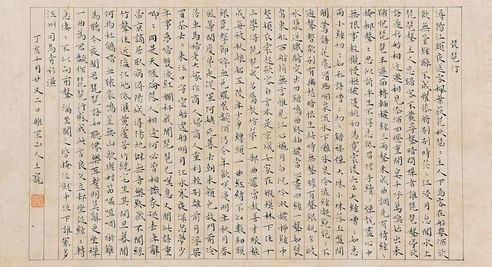 琵琶行
潯陽江頭夜送客楓葉荻花秋瑟瑟主人下馬客在船舉酒欲
飲無管絃醉不成歡慘將別別時茫茫江浸月忽聞水上
琵琶聲主人忘歸客不發尋聲暗問彈者誰琵琶聲停欲
語遲移船相近邀相見添酒回燈重開宴千呼萬喚始出來
猶抱琵琶半遮面轉軸撥絃三兩聲未成曲調先有情絃絃
掩抑聲聲思似訴平生不得志低眉信手續續彈說盡心中
無限事輕攏慢撚抹復挑初為霓裳後六幺大絃嘈嘈如急
雨小絃切切如私語嘈嘈切切錯雜彈大珠小珠落玉盤間
關鶯語花底滑幽咽泉流水下灘水泉冷澀絃凝絕凝絕不通
聲暫歇別有幽愁暗恨生此時無聲勝有聲銀瓶乍破
水漿迸鐵騎突出刀鎗鳴曲終抽撥當心畫四絃一聲如裂
帛東船西舫悄無言唯見江心秋月白沉吟放撥插絃中
整頓衣裳起斂容自言本是京城女家在蝦蟆陵下住十
三學得琵琶成名屬教坊第一部曲罷曾教善才服妝
成每被秋娘妒五陵年少爭纏頭一曲紅綃不知數鈿頭
銀篦擊節碎血色羅裙翻酒污今年歡笑復明年秋月春
風等閒度弟走從軍阿姨死暮去朝來顏色故門前冷
落車馬稀老大嫁作商人婦商人重利輕別離前月浮梁
買茶去去來江口守空船遶船月明江水寒夜深忽夢少
年事夢啼妝淚紅闌干我聞琵琶已歎息又聞此語重
唧唧同是天涯淪落人相逢何必曾相識我從去年辭
帝京謫居臥病潯陽城潯陽地僻無音樂終歲不聞絲
竹聲住近湓江地低濕黃蘆苦竹繞宅生其間旦暮聞
何物杜鵑啼血猿哀鳴豈無山歌與村笛嘔啞嘲哳難
為聽今夜聞君琵琶語如聽仙樂耳暫明莫辭更坐彈
一曲為君翻作琵琶行感我此言良久立卻坐促絃絃轉
急淒淒不似向前聲滿座聞皆掩泣就中泣下誰最多
江州司馬青衫濕
丁亥十月廿又二日山人王寵